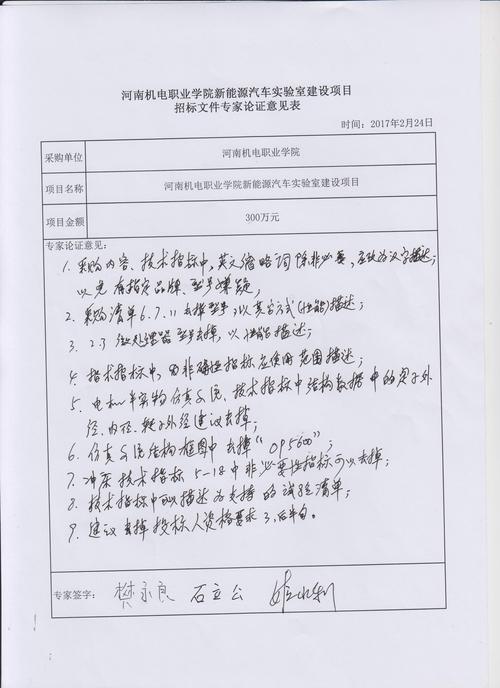 河南机电职业学院新能源汽车实验室建设项目
招标文件专家论证意见表
时间：2017年2月24日
采购单位 河南机电职业学院
项目名称 河南机电职业学院新能源汽车实验室建设项目
项目金额 300万元
专家论证意见：
1. 采购内容、技术指标中，英文缩略词除非必要，应改为汉字描述；
以免有指定品牌、型号嫌疑，
2. 采购清单6.7.11去掉型号，以其它方式（性能）描述；
3. 2.3 微处理器型号去掉，以性能描述；
4. 技术指标中，非确性指标应使用范围描述；
5. 电机半实物仿真系统，技术指标中结构数据中的定子外
径、内径、转子外径建议去掉；
6. 仿真系统结构框图中去掉“095600”；
7. 冲床技术指标5-18中非必要性指标可以去掉；
8. 技术指标中可以描述为支持的试验清单；
9. 建议去掉投标人资格要求3，后半句。
专家签字： 樊永良 石立公